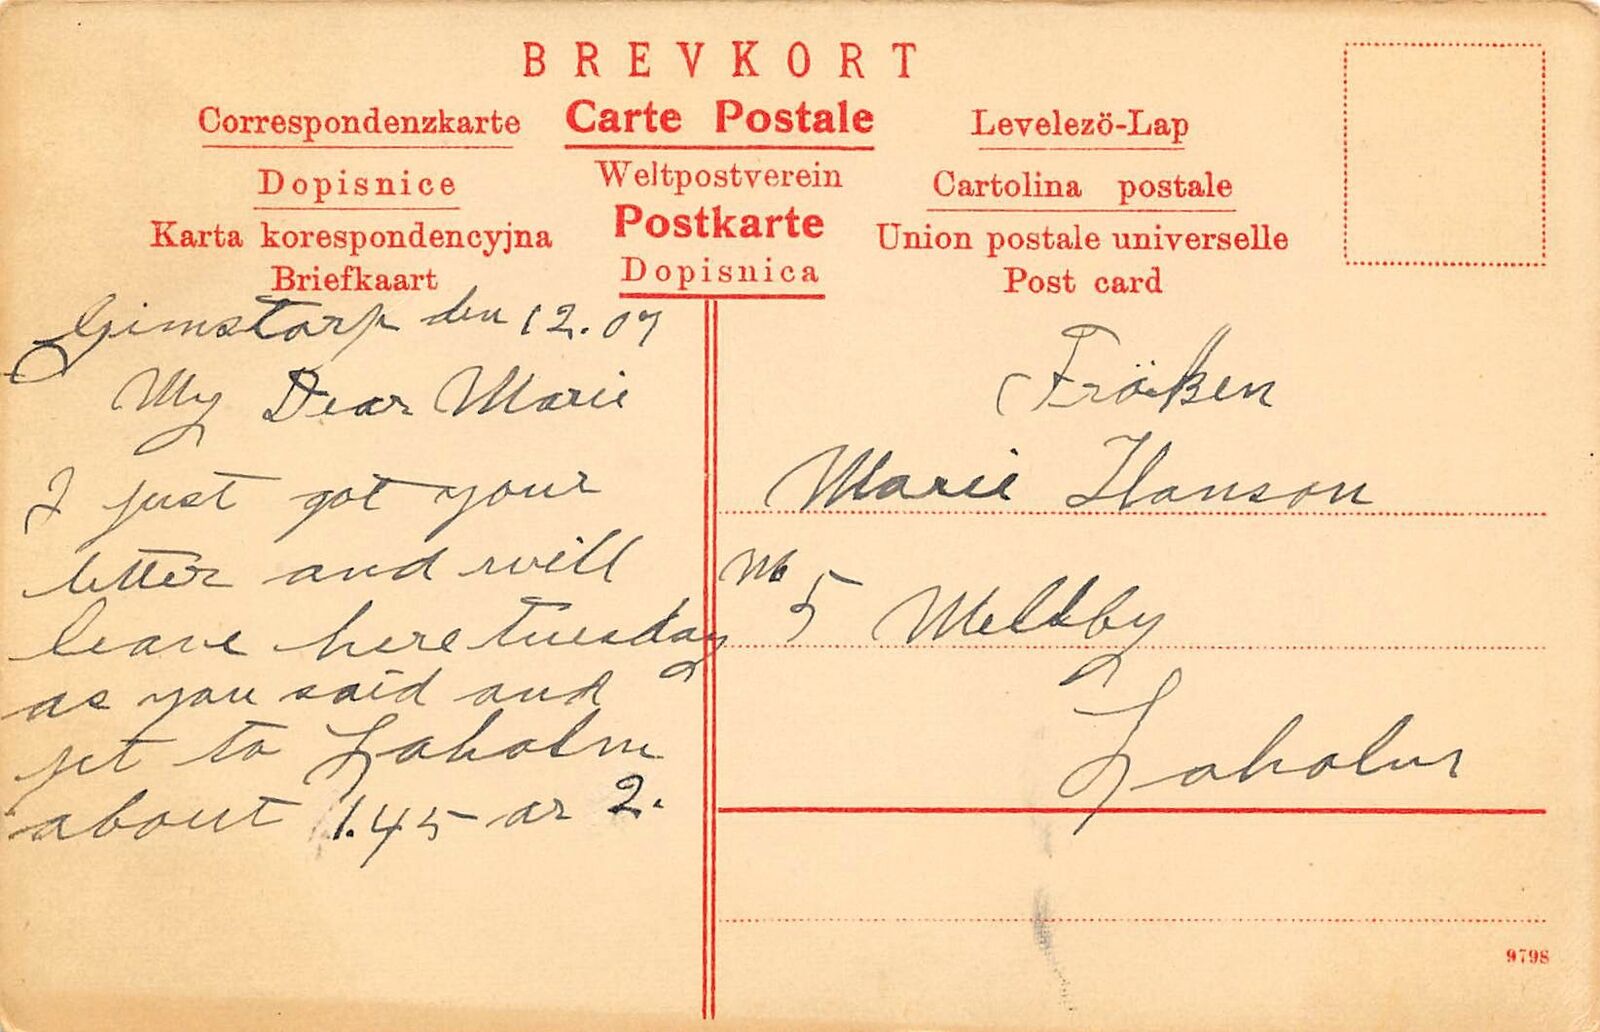 BREVKORT
Correspondenzkarte Carte Postale Levelezö-Lap
Dopisnice Weltpostverein Cartolina postale
Karta korespondencyjna Postkarte Union postale universelle
Briefkaart Dopisnica Post card
Gimstorp den 12.07
My Dear Marie
I just got your
letter and will
leave here tuesday
as you said and
jet to Laholm
about 1.45 ar 2.
Fröken
Marie Hanson
No 5 Mellby
Laholm
9798